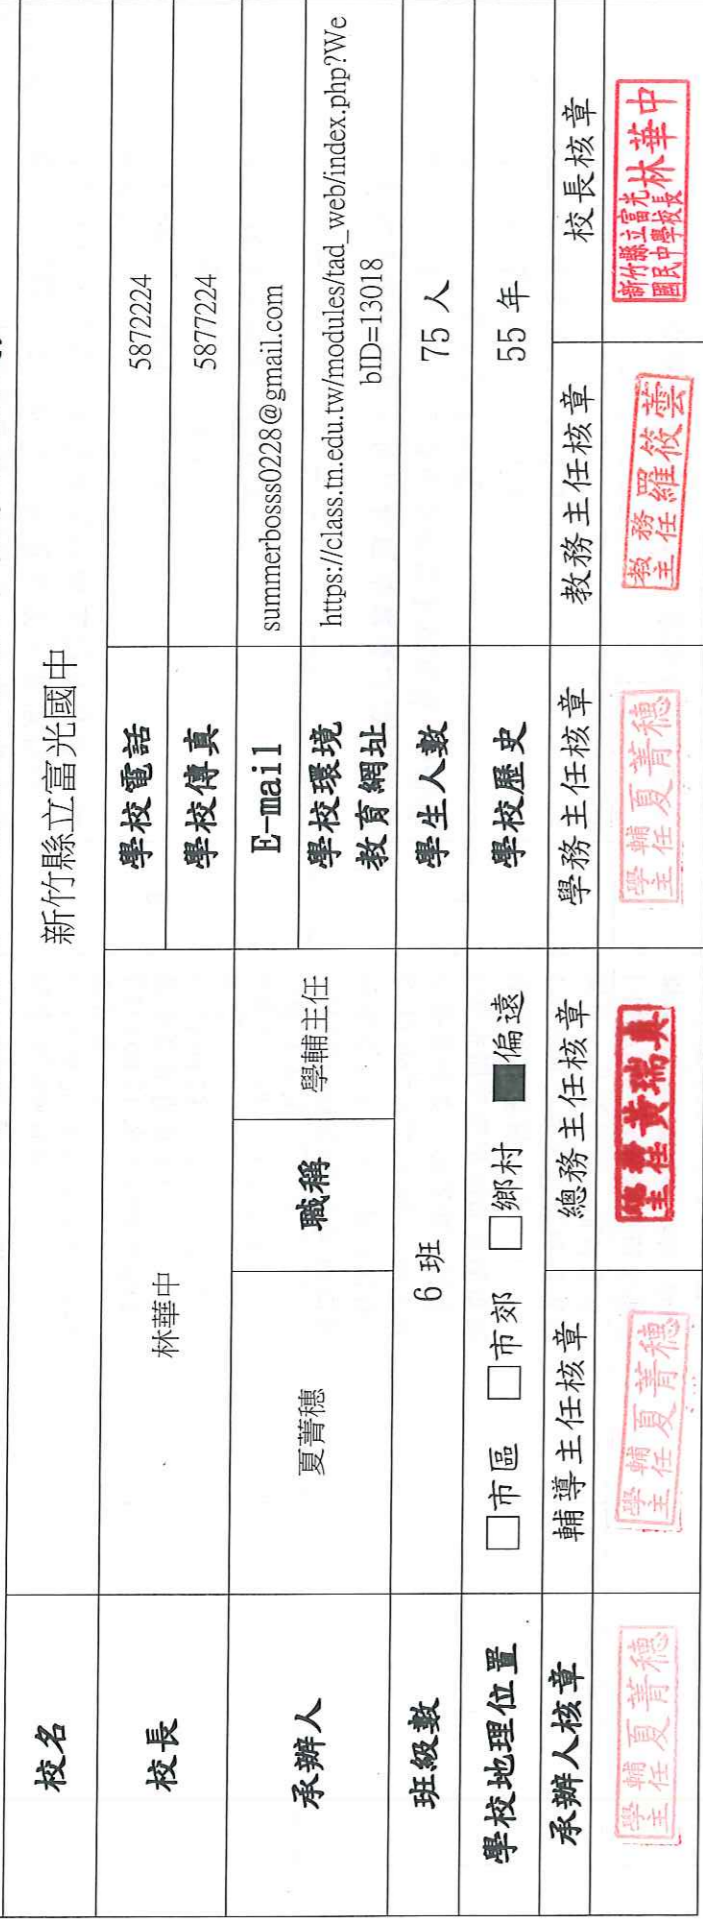 校名 新竹縣立富光國中
校長 林華中 學校電話 5872224
學校傳真 5877224
承辦人 夏菁穗 職稱 學輔主任 E-mail summerbosss0228@gmail.com
學校環境
教育網址
https://class.tn.edu.tw/modules/tad_web/index.php?We
bID=13018
班級數 6 班 學生人數 75 人
學校地理位置 □市區 □市郊 □鄉村 ■偏遠 學校歷史 55 年
承辦人核章 輔導主任核章 總務主任核章 學務主任核章 教務主任核章 校長核章
學輔主任 夏菁穗
學輔主任 夏菁穗
總務主任 黃瑞真
學輔主任 夏菁穗
教務主任 羅筱雲
新竹縣立富光
國民中學校長 林華中